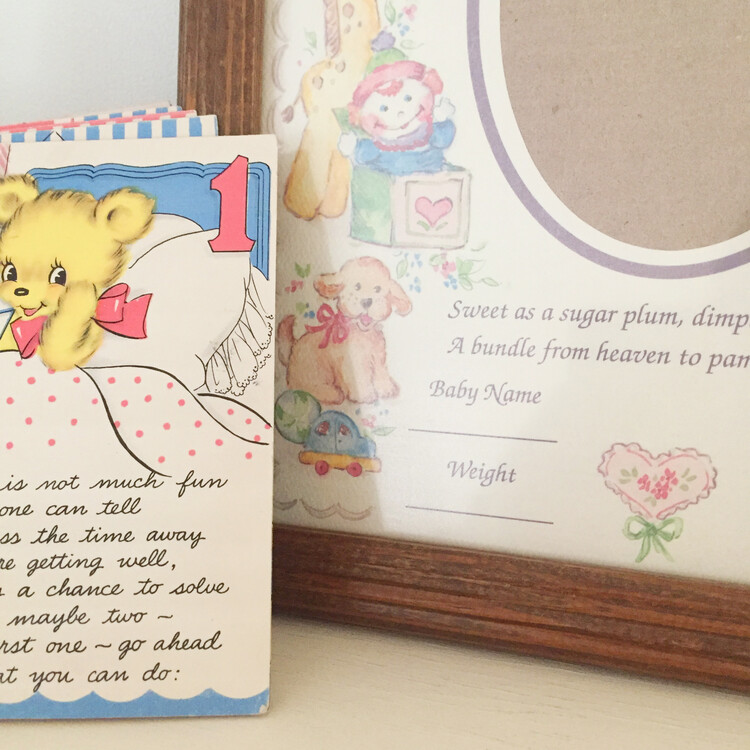 1
is not much fun
one can tell
ss the time away
re getting well,
a chance to solve
maybe two ~
rst one ~ go ahead
at you can do:
Sweet as a sugar plum, dimp
A bundle from heaven to pam
Baby Name
Weight